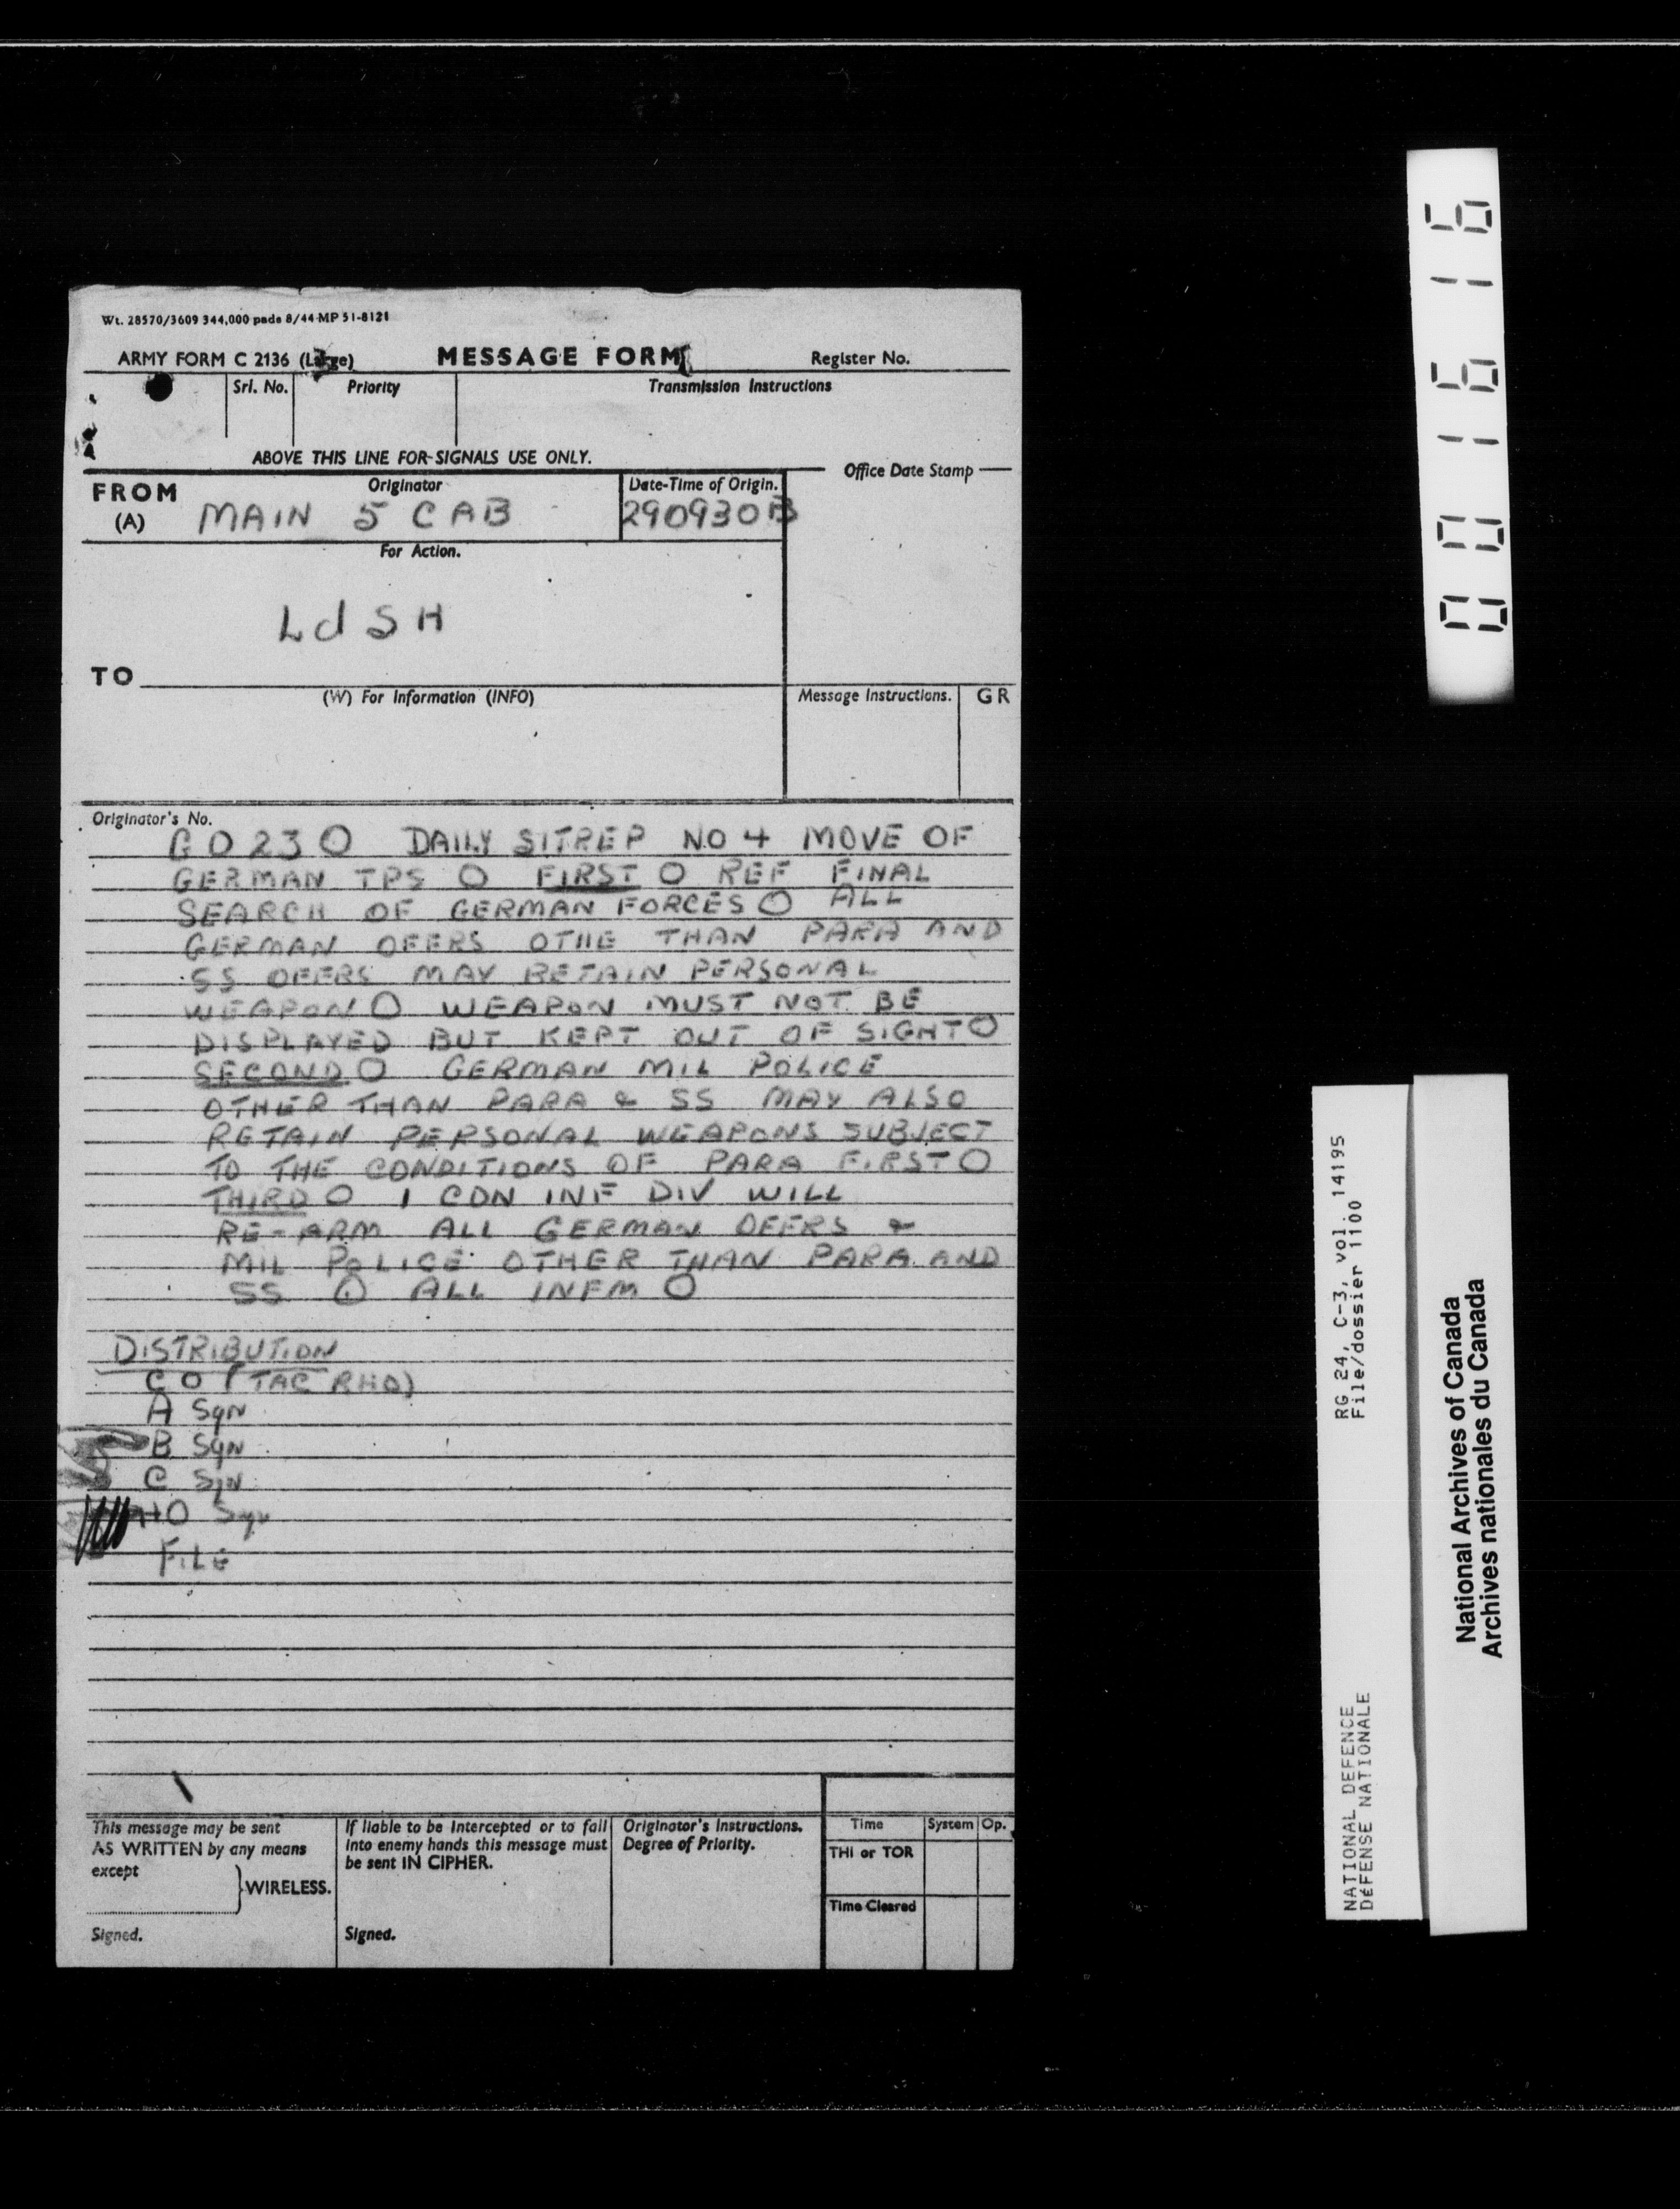 Wt. 28570/3609 344,000 pads 8/44 MP 51-8121
ARMY FORM C 2136 (Large) MESSAGE FORM Register No.
Srl. No. Priority Transmission Instructions
ABOVE THIS LINE FOR SIGNALS USE ONLY.
Office Date Stamp
FROM Originator Date-Time of Origin.
(A) MAIN 5 CAB 290930B
For Action.
LdSH
TO
(W) For Information (INFO) Message Instructions. GR
Originator's No.
GO 23 O DAILY SITREP NO 4 MOVE OF
GERMAN TPS O FIRST O REF FINAL
SEARCH OF GERMAN FORCES O ALL
GERMAN OFFRS OTHE THAN PARA AND
SS OFFRS MAY RETAIN PERSONAL
WEAPON O WEAPON MUST NOT BE
DISPLAYED BUT KEPT OUT OF SIGHT O
SECOND O GERMAN MIL POLICE
OTHER THAN PARA & SS MAY ALSO
RETAIN PERSONAL WEAPONS SUBJECT
TO THE CONDITIONS OF PARA FIRST O
THIRD O 1 CDN INF DIV WILL
RE-ARM ALL GERMAN OFFRS &
MIL POLICE OTHER THAN PARA AND
SS O ALL INFM O
DISTRIBUTION
CO (TAC RHQ)
A Sqn
B Sqn
C Sqn
HQ Sqn
FILE
This message may be sent
AS WRITTEN by any means
except
WIRELESS.
Signed.
If liable to be intercepted or to fall
into enemy hands this message must
be sent IN CIPHER.
Signed.
Originator's Instructions.
Degree of Priority.
Time System Op.
THI or TOR
Time Cleared
001616
RG 24, C-3, vol. 14195
File/dossier 1100
NATIONAL DEFENCE
DÉFENSE NATIONALE
National Archives of Canada
Archives nationales du Canada